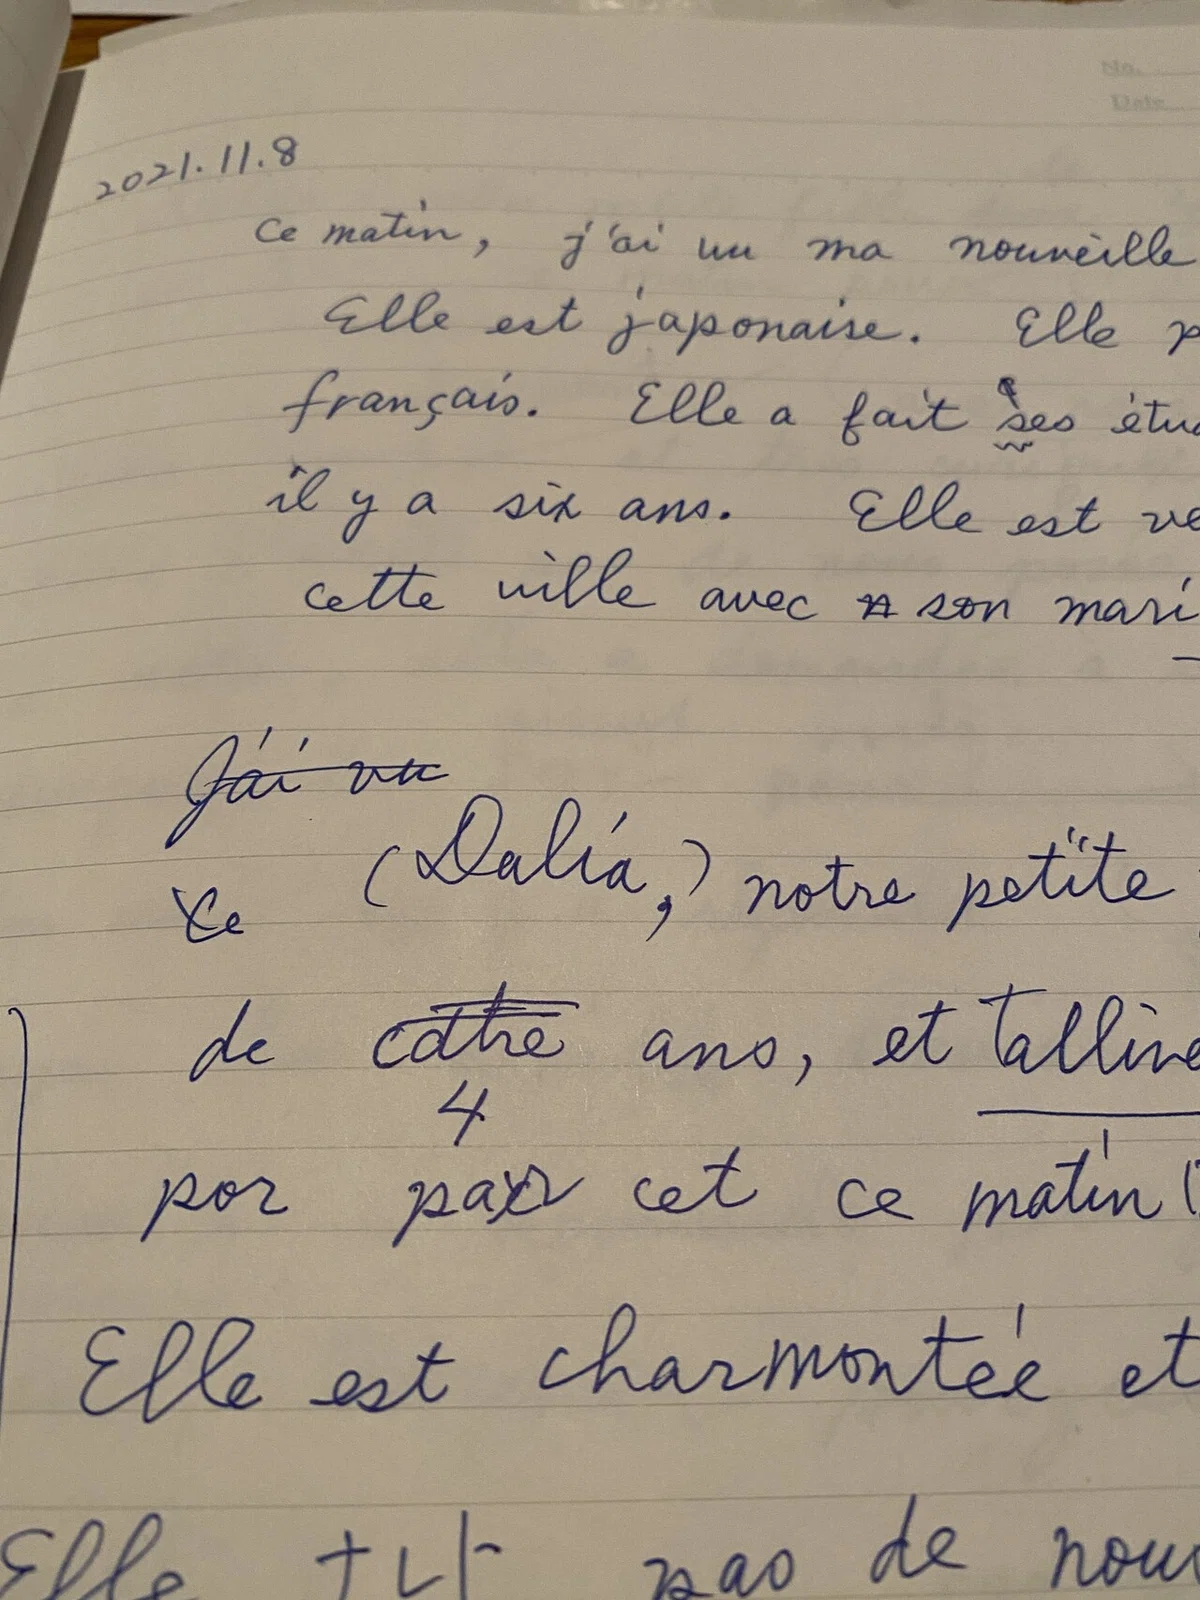 No.
Date
2021.11.8
ce matin, j'ai vu ma nouvelle
Elle est japonaise. Elle p
français. Elle a fait ses étud
il y a six ans. Elle est ve
cette ville avec son mari
J'ai vu
(Dalia,) notre petite
de catre ans, et Talline
4
por par cet ce matin
Elle est charmontée et
Elle pas de nou